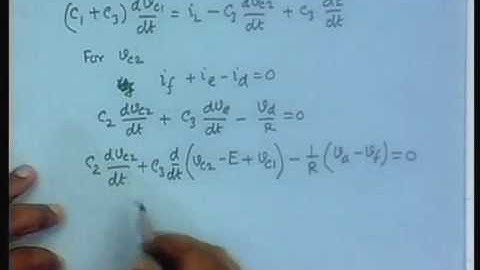 (C₁ + C₃) dv_{C1}/dt = i_L − C₃ dv_{C2}/dt + C₃ dE/dt
For v_{C2}
i_f + i_e − i_d = 0
C₂ dv_{C2}/dt + C₃ dv_e/dt − v_d/R = 0
C₂ dv_{C2}/dt + C₃ d/dt (v_{C2} − E + v_{C1}) − 1/R (v_a − v_f) = 0